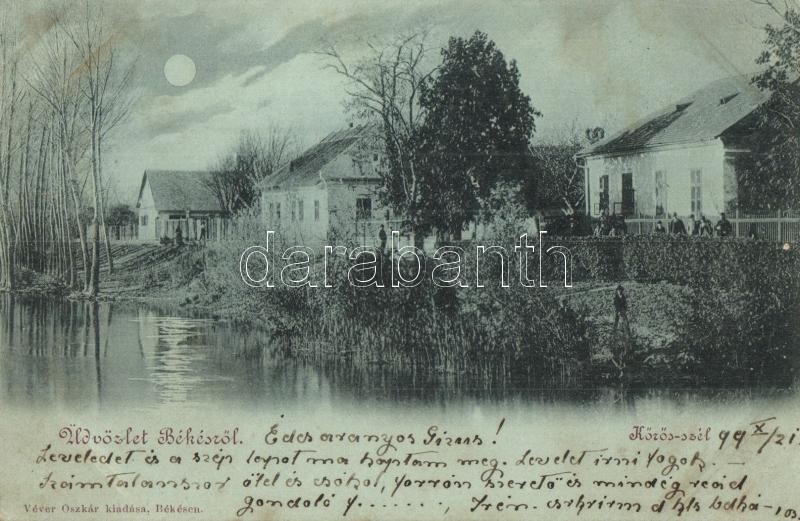 darabanth
Üdvözlet Békésről.
Édes aranyos Gizus!
Kőrös-szél
99 X/21
Leveledet és a szép lapot ma kaptam meg. Levelet irni fogok.
Számtalanszor ölel és csókol, forrón szerető és mindég reád
gondoló
Irén.
Véver Oszkár kiadása, Békésen.